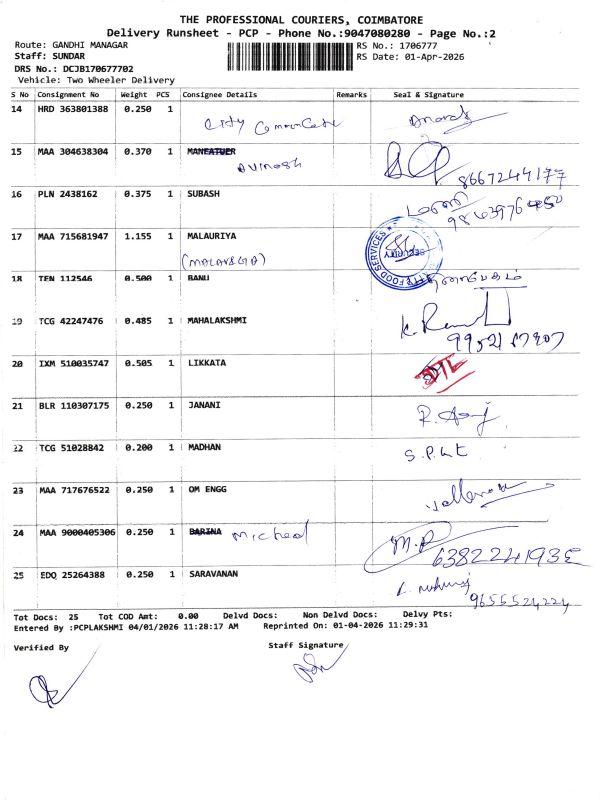 THE PROFESSIONAL COURIERS, COIMBATORE
Delivery Runsheet - PCP - Phone No.:9047080280 - Page No.:2
Route: GANDHI MANAGAR
RS No.: 1706777
Staff: SUNDAR
RS Date: 01-Apr-2026
DRS No.: DCJB170677702
Vehicle: Two Wheeler Delivery
S No Consignment No Weight PCS Consignee Details Remarks Seal & Signature
14 HRD 363801388 0.250 1
City
15 MAA 304638304 0.370 1
Avinash
8667244177
16 PLN 2438162 0.375 1 SUBASH
17 MAA 715681947 1.155 1 MALAURIYA
FOOD SERVICES
SECURITY
18 TEN 112546 0.500 1 BANU
19 TCG 42247476 0.485 1 MAHALAKSHMI
20 IXM 510035747 0.505 1 LIKKATA
21 BLR 110307175 0.250 1 JANANI
22 TCG 51028842 0.200 1 MADHAN
23 MAA 717676522 0.250 1 OM ENGG
24 MAA 9000405306 0.250 1 BARINA Micheal
M.P
25 EDQ 25264388 0.250 1 SARAVANAN
9655524224
Tot Docs: 25 Tot COD Amt: 0.00 Delvd Docs: Non Delvd Docs: Delvy Pts:
Entered By :PCPLAKSHMI 04/01/2026 11:28:17 AM Reprinted On: 01-04-2026 11:29:31
Verified By Staff Signature